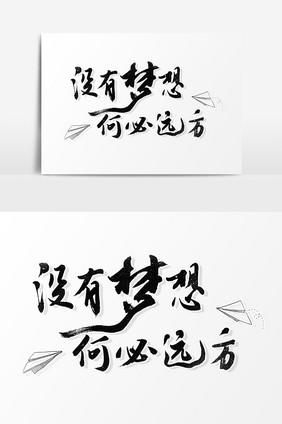 没有梦想
何必远方
没有梦想
何必远方